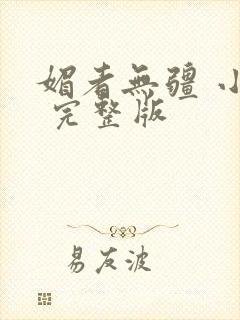 媚者無疆 小
完整版
易友波